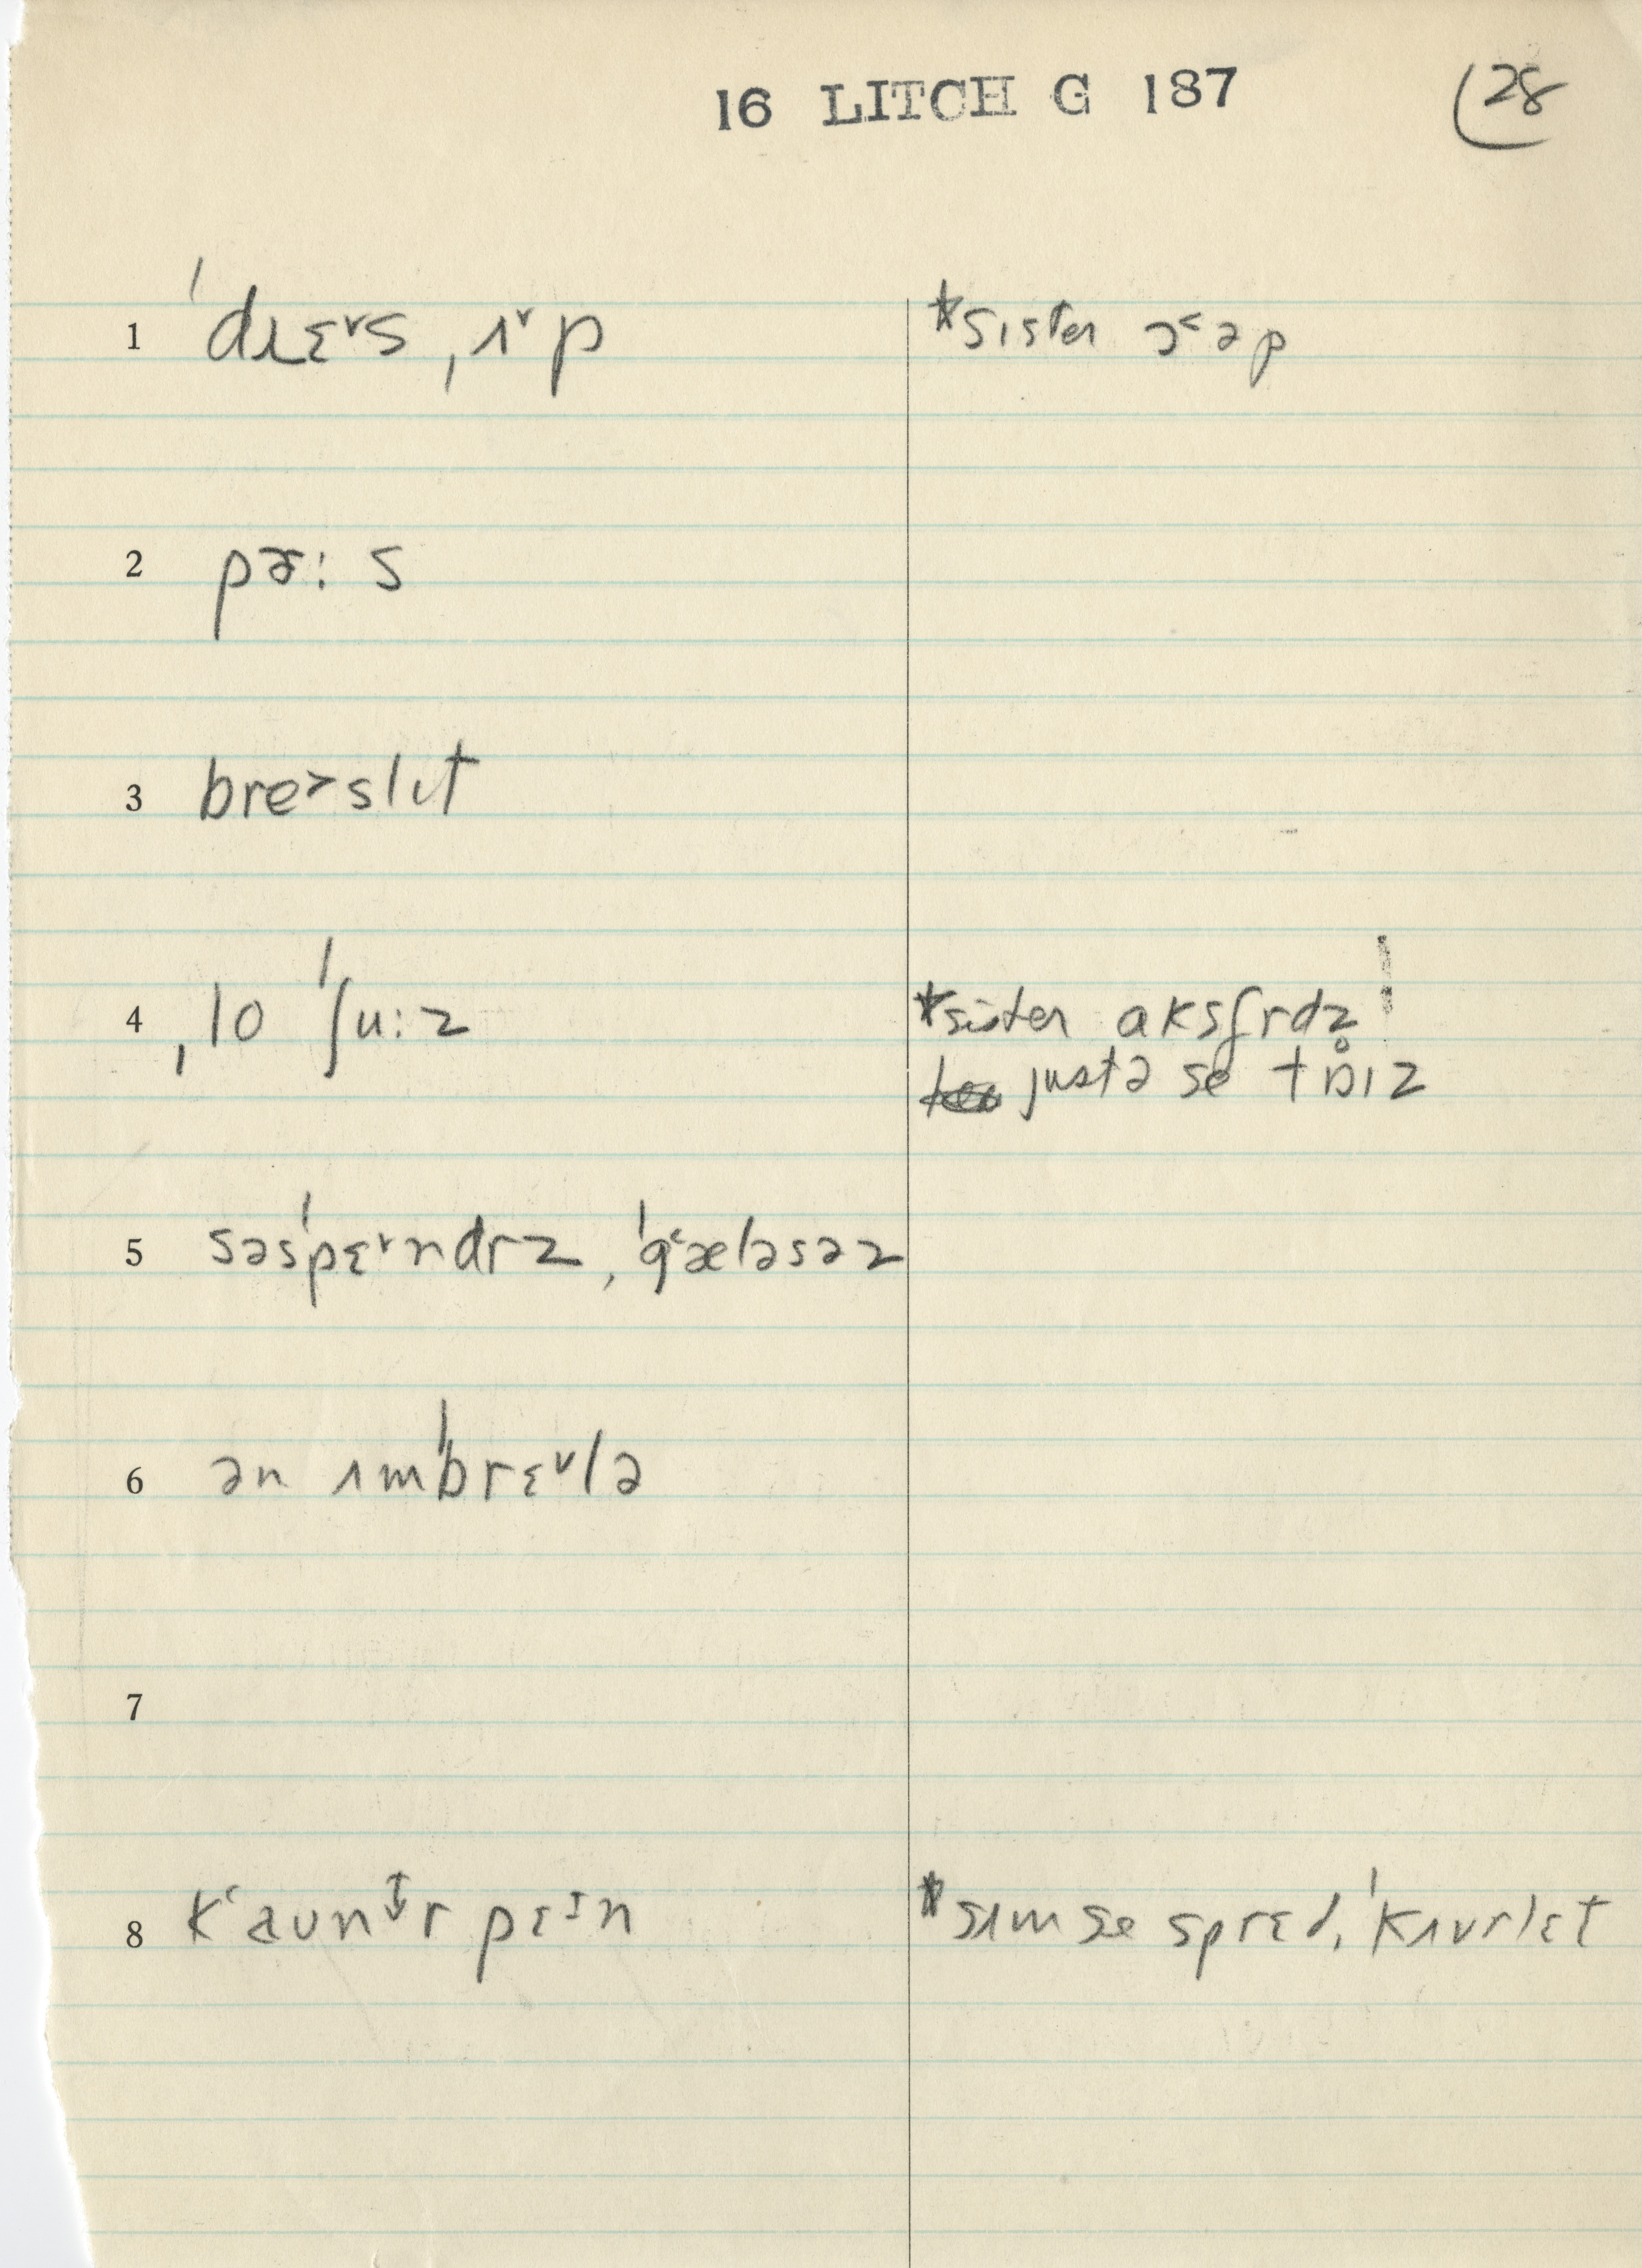 16 LITCH G 187
28
1 ˈdɹɛ˅s ˌʌ˅p
*sister ɔ˂əp
2 pɚ: s
3 bre˃slɩt
4 ˌlo ˈʃu:z
*sister aksfrdz
justə se tɒ̊ɪz
5 səsˈpɛ˅ndrz, ˈg˂æləsəz
6 ən ʌmˈbrɛ˅lə
7
8 k˂aʊntr pɛɪn
*sɪm se sprɛd, ˈkʌvrlɛt